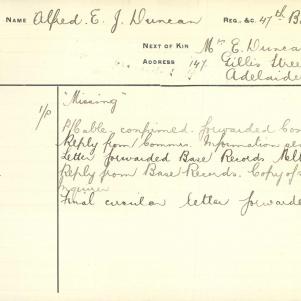 NAME Alfred. E. J. Duncan REG. &C. 47th B
NEXT OF KIN Mrs E. Duncan
ADDRESS 147. Gillis Stree
Adelaide
1/P "Missing"
P/Cable, confirmed. forwarded Com
Reply from Commrs. Information sen
Letter forwarded Base Records Melb
Reply from Base Records. Copy of s
Inquirer
Final circular letter forwarde